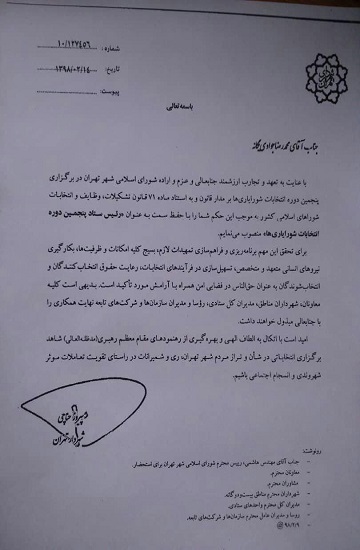 شماره: ۱۰/۱۲۷۴۵۶
تاریخ: ۱۳۹۸/۰۲/۱۴
پیوست:
باسمه تعالی
جناب آقای محمدرضا جوادی یگانه
با عنایت به تعهد و تجارب ارزشمند جنابعالی و عزم و اراده شورای اسلامی شهر تهران در برگزاری
پنجمین دوره انتخابات شورایاری‌ها بر مدار قانون و به استناد ماده ۷۱ قانون تشکیلات، وظایف و انتخابات
شوراهای اسلامی کشور به موجب این حکم شما را با حفظ سمت به عنوان «رئیس ستاد پنجمین دوره
انتخابات شورایاری‌ها» منصوب می‌نمایم.
برای تحقق این مهم برنامه‌ریزی و فراهم‌سازی تمهیدات لازم، بسیج کلیه امکانات و ظرفیت‌ها، بکارگیری
نیروهای انسانی متعهد و متخصص، تسهیل‌سازی در فرآیندهای انتخابات، رعایت حقوق انتخاب کنندگان و
انتخاب‌شوندگان به عنوان حق‌الناس در فضایی امن همراه با آرامش مورد تأکید است. بدیهی است کلیه
معاونان، شهرداران مناطق، مدیران کل ستادی، روسا و مدیران سازمان‌ها و شرکت‌های تابعه نهایت همکاری را
با جنابعالی مبذول خواهند داشت.
امید است با اتکال به الطاف الهی و بهره‌گیری از رهنمودهای مقام معظم رهبری(مدظله‌العالی) شاهد
برگزاری انتخاباتی در شأن و تراز مردم شهر تهران، ری و شمیرانات در راستای تقویت تعاملات موثر
شهروندی و انسجام اجتماعی باشیم.
پیروز حناچی
شهردار تهران
رونوشت:
- جناب آقای مهندس هاشمی، رییس محترم شورای اسلامی شهر تهران برای استحضار.
- معاونان محترم.
- مشاوران محترم.
- شهرداران محترم مناطق بیست‌ودوگانه.
- مدیران کل محترم واحدهای ستادی.
- روسا و مدیران عامل محترم سازمان‌ها و شرکت‌های تابعه.
۹۸/۲/۹